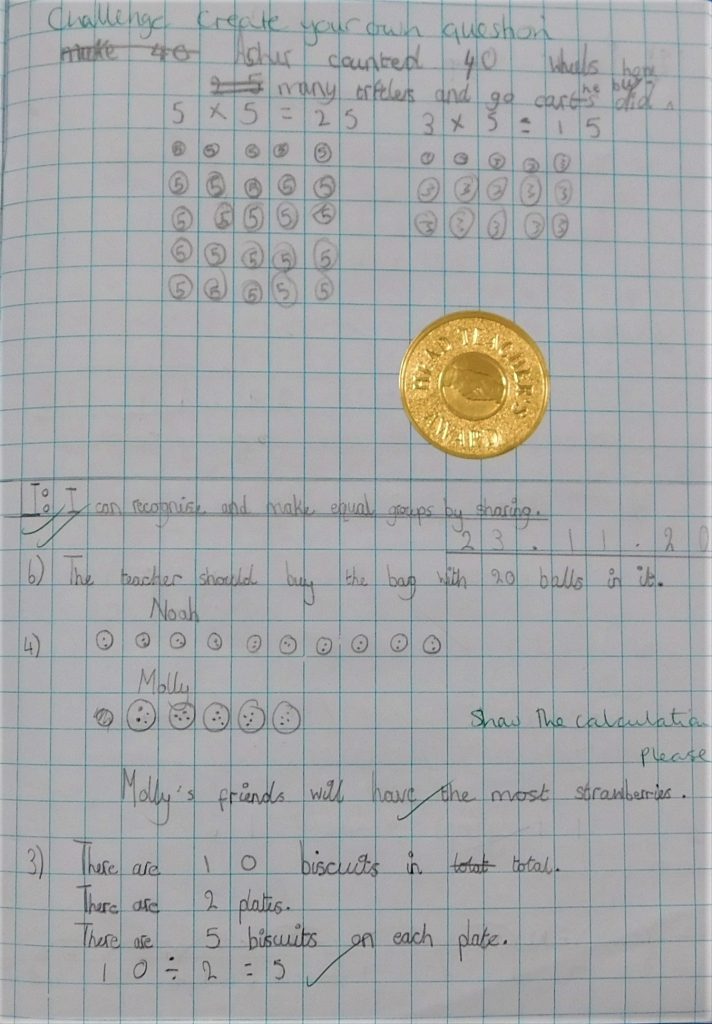 Challenge Create your own question
make 40 Asher counted 40 Whels how
25 many trffelers and go carts he buy did?
5 × 5 = 25 3 × 5 = 15
5 5 5 5 5 3 3 3 3 3
5 5 5 5 5 3 3 3 3 3
5 5 5 5 5 3 3 3 3 3
5 5 5 5 5
5 5 5 5 5
HEAD TEACHER'S AWARD
I: I can recognise and make equal groups by sharing.
23.11.20
6) The teacher should buy the bag with 20 balls in it.
Noah
4)
Molly
Show the calculation
please
Molly's friends will have the most strawberries.
3) There are 10 biscuits in total total.
There are 2 plates.
There are 5 biscuits on each plate.
10 ÷ 2 = 5